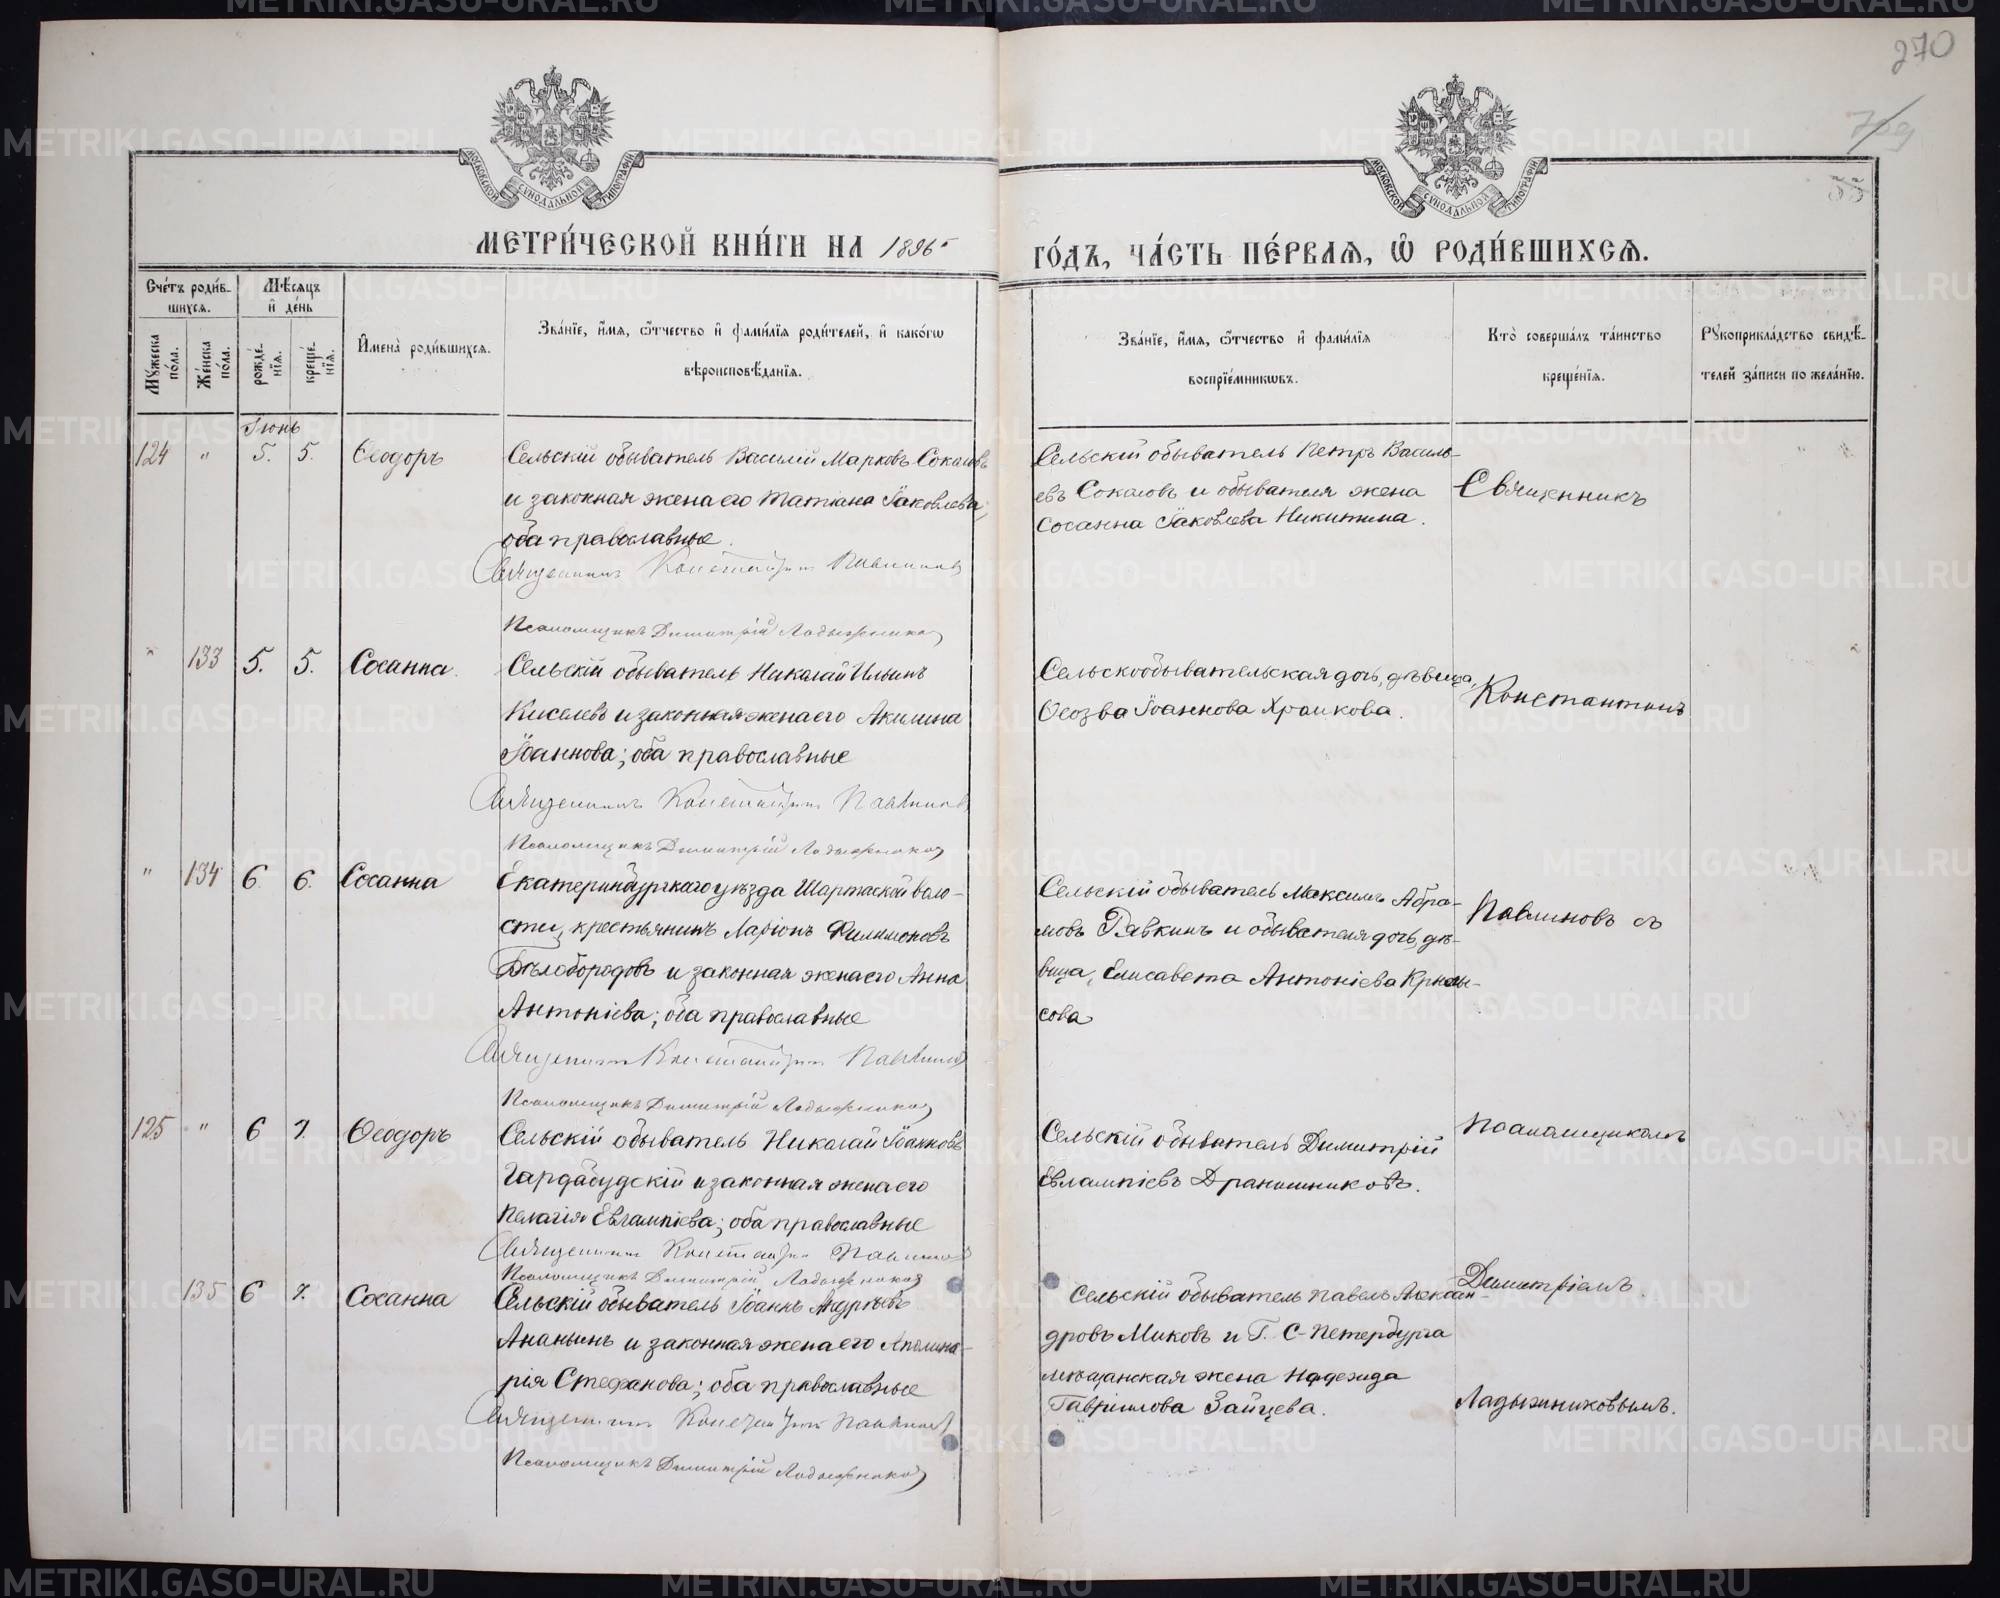 270
709
МОСКОВСКОЙ СѴНОДАЛЬНОЙ ТИПОГРАФІИ
МОСКОВСКОЙ СѴНОДАЛЬНОЙ ТИПОГРАФІИ
МЕТРИ́ЧЕСКОЙ КНИ́ГИ НА 1896
ГО́ДЪ, ЧА́СТЬ ПЕ́РВАѦ, Ѡ҆ РОДИ́ВШИХСѦ.
Сче́тъ роди́в-
шихсѧ.
Мѣ́сѧцъ
и҆ де́нь
Мꙋ́жеска по́ла.
Же́нска по́ла.
рожде́-нїѧ.
креще́-нїѧ.
И҆мена̀ роди́вшихсѧ.
Зва́нїе, и҆́мѧ, ѻ҆́тчество и҆ фами́лїѧ роди́телей, и҆ како́гѡ
вѣроисповѣ́данїѧ.
Зва́нїе, и҆́мѧ, ѻ҆́тчество и҆ фами́лїѧ
воспрїе́мникѡвъ.
Кто̀ соверша́лъ та́инство
креще́нїѧ.
Рꙋкоприкла́дство свидѣ́-
телей за́писи по жела́нїю.
Іюнь
124 " 5. 5. Ѳеодоръ
Сельскій обыватель Василій Марковъ Соколовъ
и законная жена его Татіана Іаковлева;
оба православные.
Священникъ Константинъ Павлиновъ
Псаломщикъ Димитрій Ладыжниковъ
Сельскій обыватель Петръ Василь-
евъ Соколовъ и обывателя жена
Сосанна Іаковлева Никитина.
Священникъ
" 133 5. 5. Сосанна.
Сельскій обыватель Николай Ильинъ
Киселевъ и законная жена его Акилина
Іоаннова; оба православные
Священникъ Константинъ Павлиновъ
Псаломщикъ Димитрій Ладыжниковъ
Сельскообывательская дочь, дѣвица,
Ѳеозва Іоаннова Храмкова.
Константинъ
" 134 6. 6. Сосанна
Екатеринбургскаго уѣзда Шарташской воло-
сти, крестьянинъ Ларіонъ Филимоновъ
Бѣлобородовъ и законная жена его Анна
Антоніева; оба православные
Священникъ Константинъ Павлиновъ
Псаломщикъ Димитрій Ладыжниковъ
Сельскій обыватель Максимъ Абра-
мовъ Рявкинъ и обывателя дочь, дѣ-
вица, Елисавета Антоніева
сова
Павлиновъ съ
125 " 6 7. Ѳеодоръ
Сельскій обыватель Николай Іоанновъ
Гардабудскій и законная жена его
Пелагія Евлампіева; оба православные
Священникъ Константинъ Павлиновъ
Псаломщикъ Димитрій Ладыжниковъ
Сельскій обыватель Димитрій
Евлампіевъ Дранишниковъ.
Псаломщикомъ
135 6 7. Сосанна
Сельскій обыватель Іоаннъ Андреевъ
Ананьинъ и законная жена его Аполина-
рія Стефанова; оба православные
Священникъ Константинъ Павлиновъ
Псаломщикъ Димитрій Ладыжниковъ
Сельскій обыватель Павелъ Алексан-
дровъ Миковъ и Г. С-Петербурга
мѣщанская жена Надежда
Гавриилова Зайцева.
Димитріемъ
Ладыжниковымъ.
METRIKI.GASO-URAL.RU